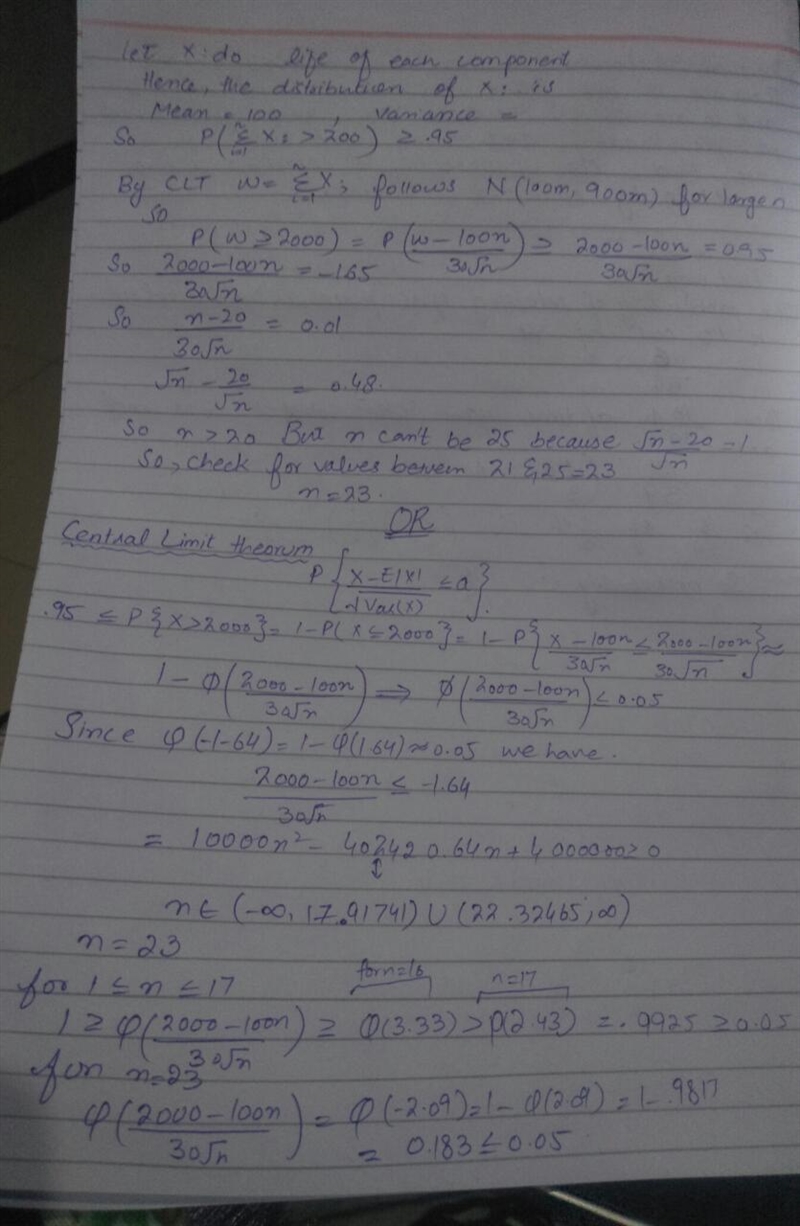 Let Xi do life of each component
Hence, the distribution of Xi is
Mean = 100 , Variance =
So P(n∑i=1 Xi > 200) ≥ .95
By CLT W = n∑i=1 Xi follows N(100m, 900m) for large n
So
P(W ≥ 2000) = P(W-100n/30√n) ≥ 2000-100n/30√n = 0.95
So 2000-100n/30√n = -1.65
So n-20/30√n = 0.01
√n - 20/√n = 0.48.
So n > 20 But n can't be 25 because √n-20/√n = 1
So, check for values between 21 & 25 = 23
n = 23.
OR
Central Limit theorum
P{X-E|X|/√Var(X) ≤ a}.
.95 ≤ P{X>2000} = 1-P(X≤2000} = 1-P{X-100n/30√n ≤ 2000-100n/30√n} ≈
1-Φ(2000-100n/30√n) ⟹ Φ(2000-100n/30√n) < 0.05
Since φ(-1-64) = 1-φ(1.64) ≈ 0.05 we have.
2000-100n/30√n ≤ -1.64
= 10000n² - 402420.64n + 4000000 ≥ 0
↕
n ∈ (-∞, 17.91741) ∪ (22.32465, ∞)
n = 23
for n=16 n=17
for 1 ≤ n ≤ 17
1 ≥ φ(2000-100n/30√n) ≥ φ(3.33) > φ(2.43) = .9925 ≥ 0.05
for n=23
φ(2000-100n/30√n) = φ(-2.09) = 1-φ(2.09) = 1-.9817
= 0.183 ≤ 0.05